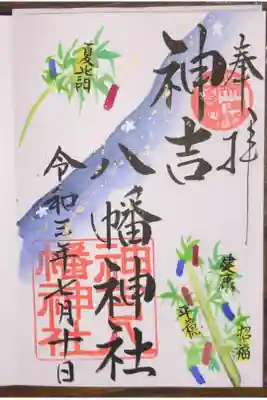 奉拝
神吉
八幡神社
令和三年七月十日
夏詣
健康
招福
神吉八幡神社